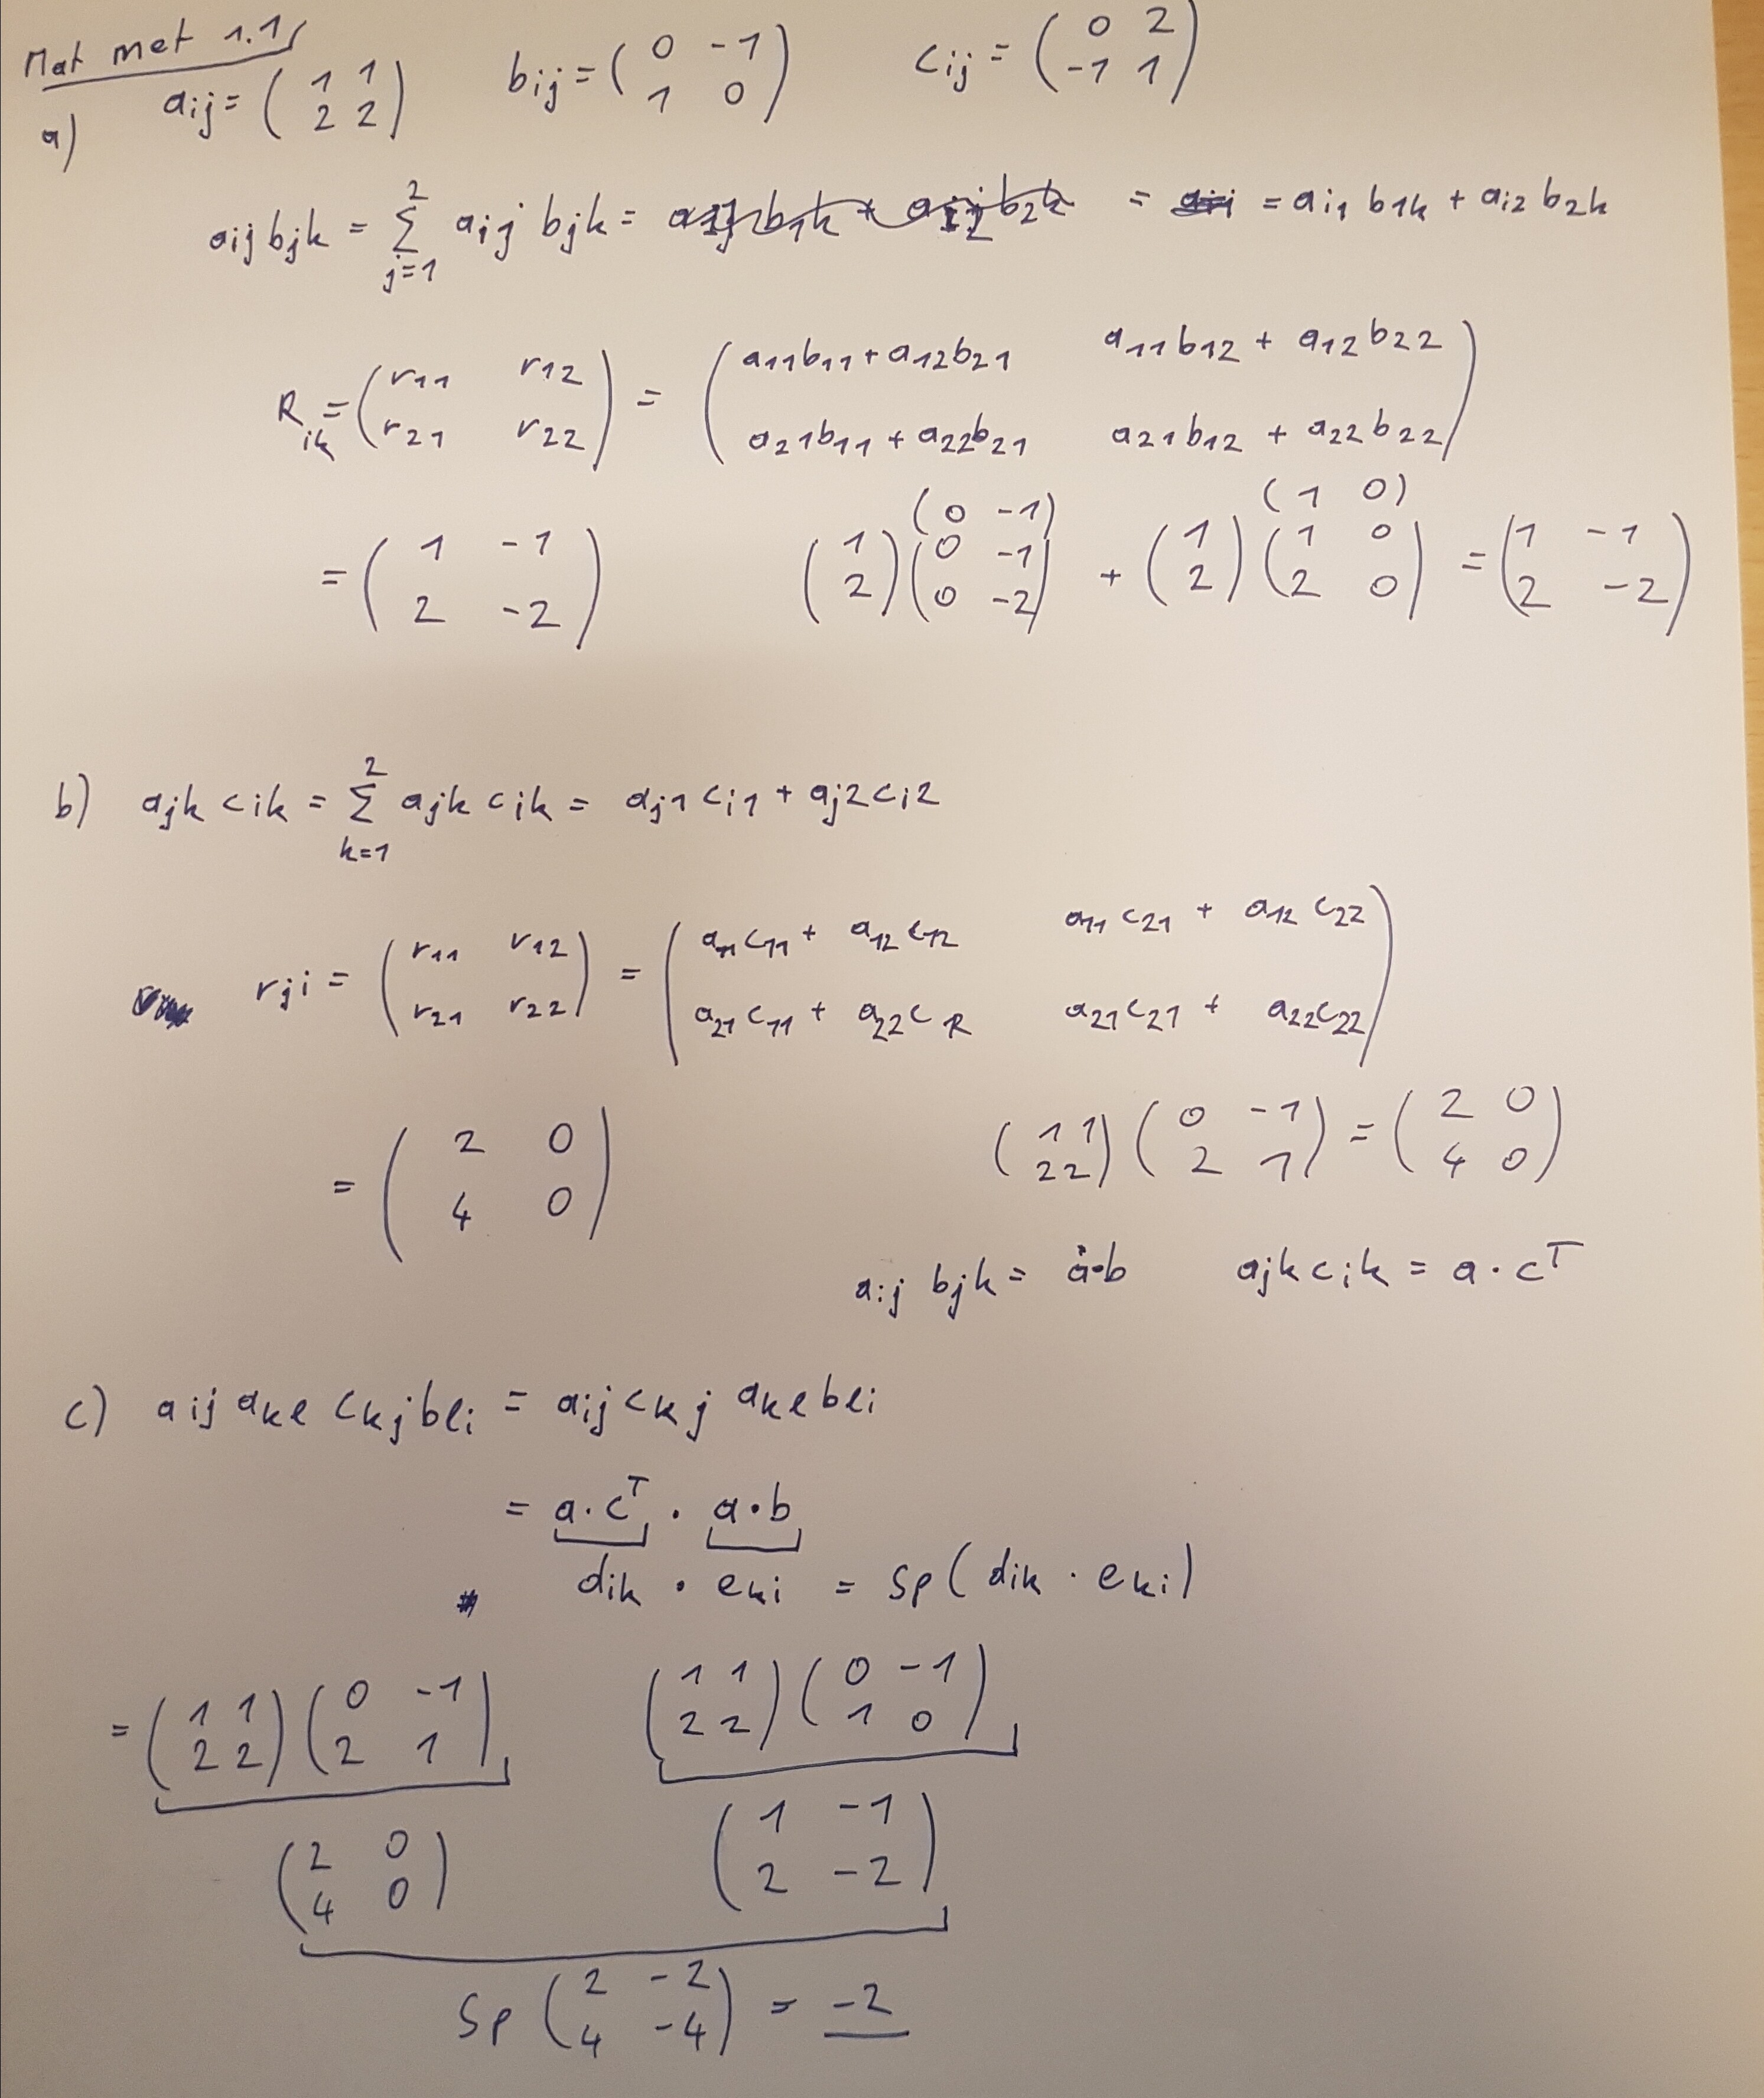 Mat met 1.1
a) aij = ( 1 1 / 2 2 ) bij = ( 0 -1 / 1 0 ) cij = ( 0 2 / -1 1 )
aij bjk = Σ_{j=1}^{2} aij bjk = = = ai1 b1k + ai2 b2k
R_ik = ( r11 r12 / r21 r22 ) = ( a11b11 + a12b21 a11b12 + a12b22 / a21b11 + a22b21 a21b12 + a22b22 )
(0 -1) (1 0)
= ( 1 -1 / 2 -2 ) ( 1 / 2 ) ( 0 -1 / 0 -2 ) + ( 1 / 2 ) ( 1 0 / 2 0 ) = ( 1 -1 / 2 -2 )
b) ajk cik = Σ_{k=1}^{2} ajk cik = aj1 ci1 + aj2 ci2
rji = ( r11 r12 / r21 r22 ) = ( a11c11 + a12c12 a11c21 + a12c22 / a21c11 + a22c12 a21c21 + a22c22 )
= ( 2 0 / 4 0 ) ( 1 1 / 2 2 ) ( 0 -1 / 2 1 ) = ( 2 0 / 4 0 )
aij bjk = a·b ajk cik = a · c^T
c) aij akl ckj bli = aij ckj akl bli
= a · c^T · a · b
dik · eki = Sp( dik · eki )
= ( 1 1 / 2 2 ) ( 0 -1 / 2 1 ) ( 1 1 / 2 2 ) ( 0 -1 / 1 0 )
( 2 0 / 4 0 ) ( 1 -1 / 2 -2 )
Sp ( 2 -2 / 4 -4 ) = -2